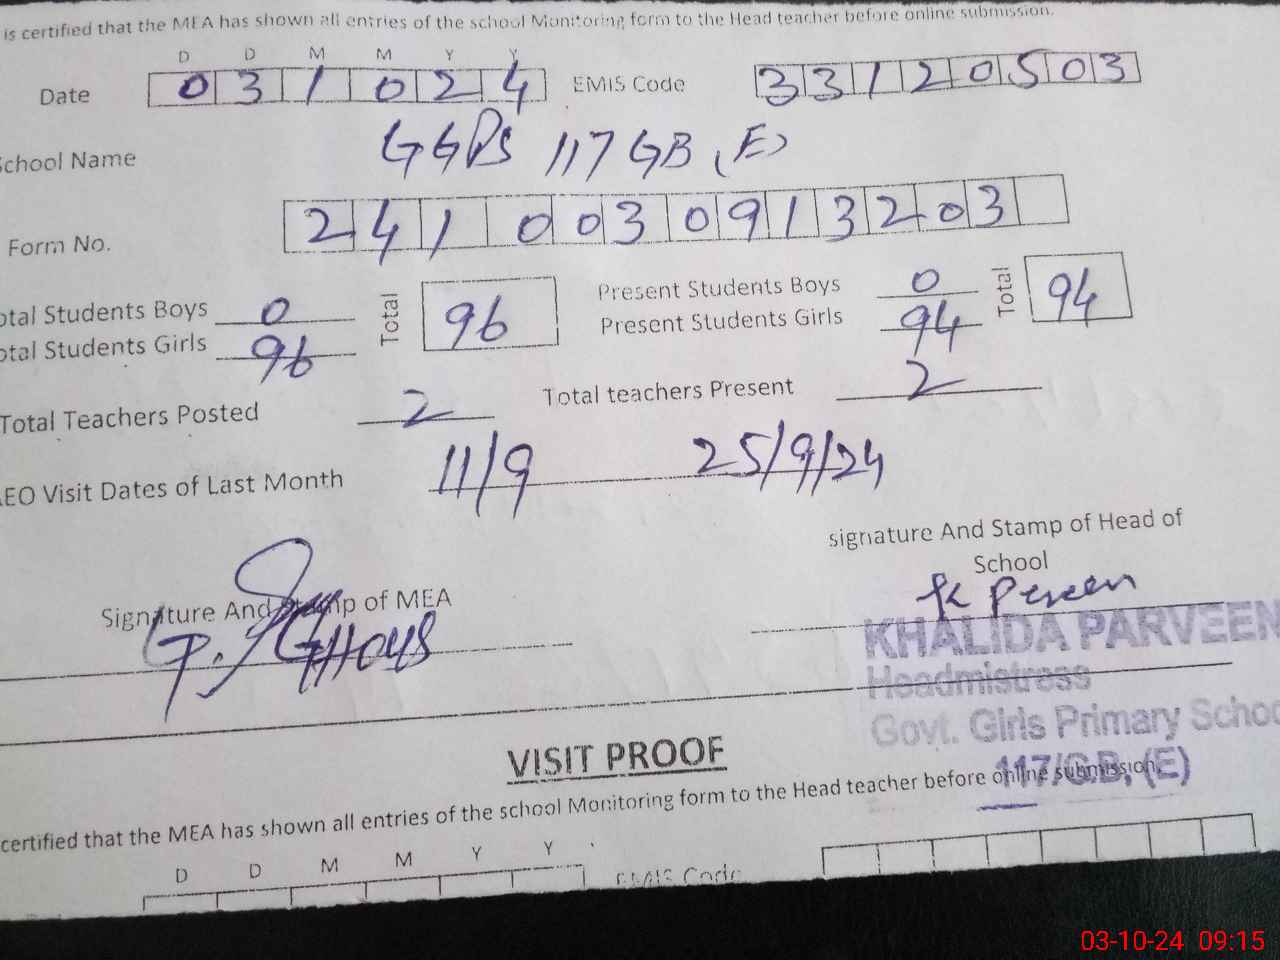 is certified that the MEA has shown all entries of the school Monitoring form to the Head teacher before online submission.
D D M M Y Y
Date 0 3 1 0 2 4 EMIS Code 3 3 1 2 0 5 0 3
School Name GGPS 117 GB (E)
Form No. 2 4 1 0 0 3 0 9 1 3 2 0 3
otal Students Boys 0 Total 96 Present Students Boys 0 Total 94
otal Students Girls 96 Present Students Girls 94
Total Teachers Posted 2 Total teachers Present 2
AEO Visit Dates of Last Month 11/9 25/9/24
signature And Stamp of Head of
School
Signature And Stamp of MEA
K Perveen
KHALIDA PARVEEN
Headmistress
Govt. Girls Primary Schoo
117/G.B, (E)
VISIT PROOF
certified that the MEA has shown all entries of the school Monitoring form to the Head teacher before online submission.
D D M M Y Y
EMIS Code
03-10-24 09:15